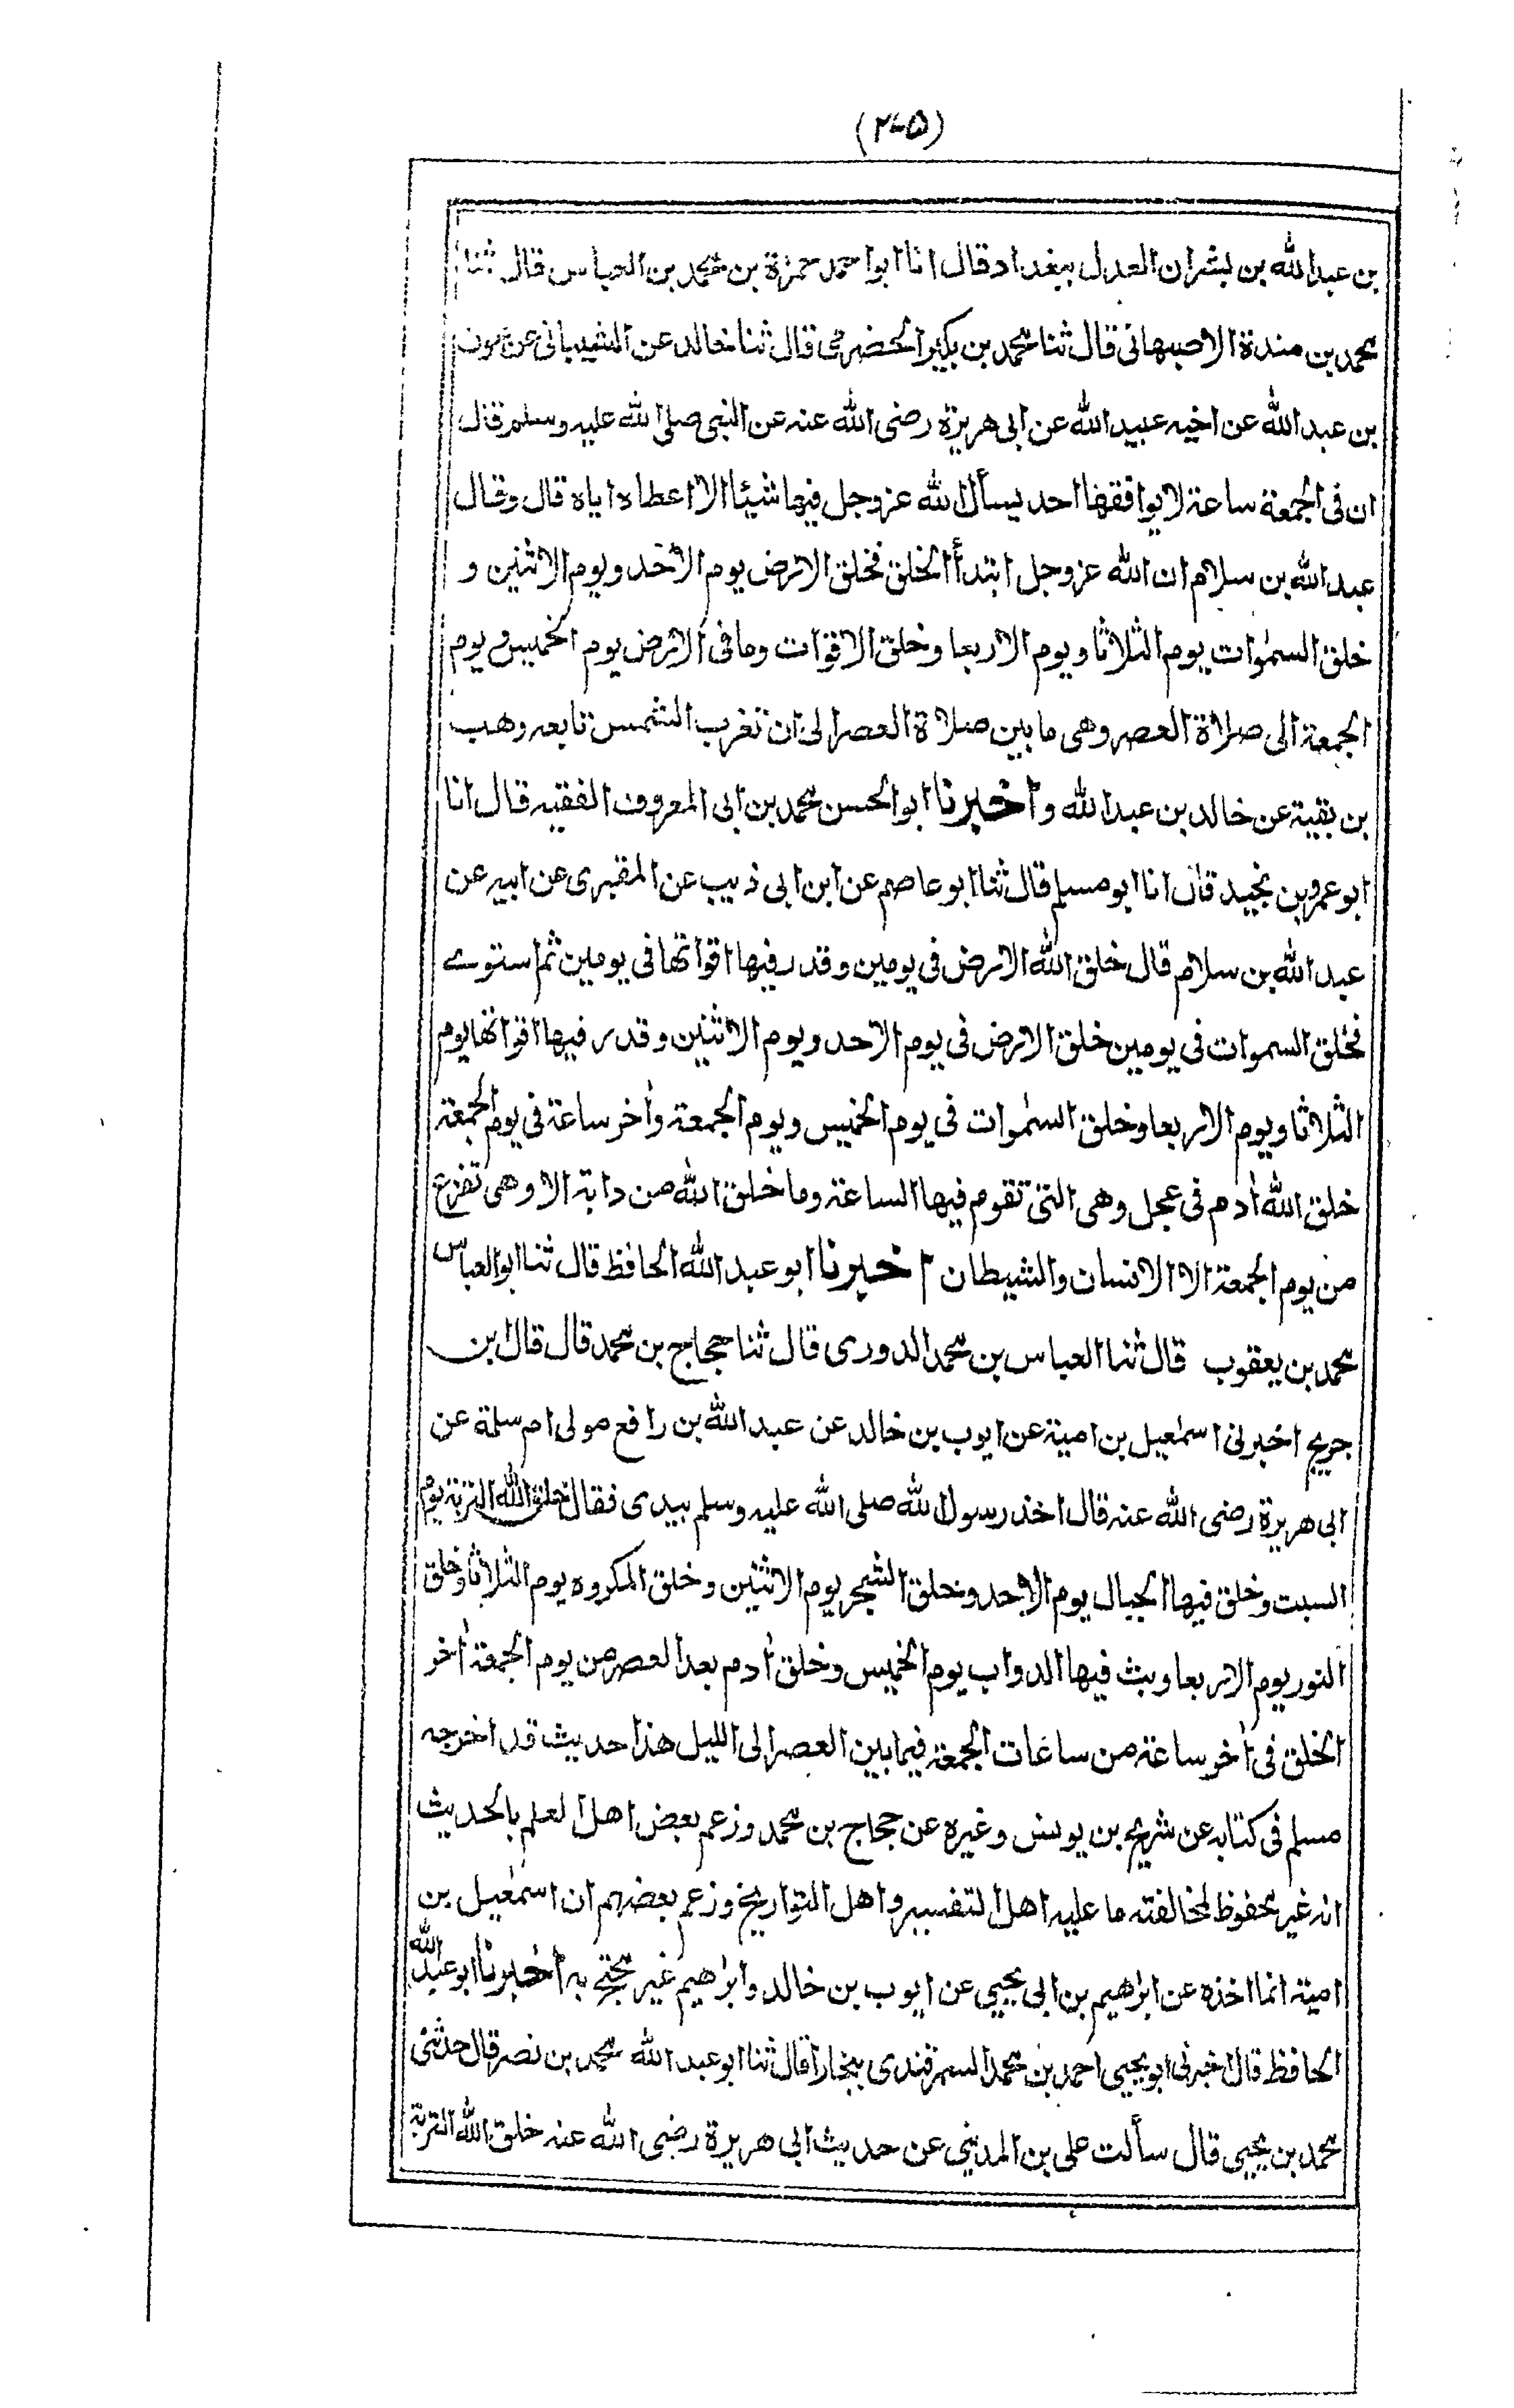 (٢٧٥)
بن عبدالله بن بشران العدل ببغداد قال انا ابو احمد حمزة بن محمد بن العباس قال ثنا
محمد بن مندة الاصبهانى قال ثنا محمد بن بكير الحضرمى قال ثنا خالد عن الشيبانى عن عون
بن عبد الله عن اخيه عبيد الله عن ابى هريرة رضى الله عنه عن النبى صلى الله عليه وسلم قال
ان فى الجمعة ساعة لا يوافقها احد يسأل الله عز وجل فيها شيئا الا اعطاه اياه قال وقال
عبد الله بن سلام ان الله عز وجل ابتدأ الخلق فخلق الارض يوم الاحد ويوم الاثنين و
خلق السمٰوات يوم الثلاثا ويوم الاربعا وخلق الاقوات وما فى الارض يوم الخميس ويوم
الجمعة الى صلاة العصر وهى ما بين صلاة العصر الى ان تغرب الشمس تابعه وهب
بن بقية عن خالد بن عبد الله واخبرنا ابو الحسن محمد بن ابى المعروف الفقيه قال انا
ابو عمرو بن نجيد قال انا ابو مسلم قال ثنا ابو عاصم عن ابن ابى ذيب عن المقبرى عن ابيه عن
عبد الله بن سلام قال خلق الله الارض فى يومين وقدر فيها اقواتها فى يومين ثم استوے
فخلق السموات فى يومين خلق الارض فى يوم الاحد ويوم الاثنين وقدر فيها اقواتها يوم
الثلاثا ويوم الاربعا وخلق السمٰوات فى يوم الخميس ويوم الجمعة واٰخر ساعة فى يوم الجمعة
خلق الله اٰدم فى عجل وهى التى تقوم فيها الساعة وما خلق الله من دابة الا وهى تفزع
من يوم الجمعة الا الانسان والشيطان اخبرنا ابو عبد الله الحافظ قال ثنا ابو العباس
محمد بن يعقوب قال ثنا العباس بن محمد الدورى قال ثنا حجاج بن محمد قال قال ابن
جريج اخبرنى اسمٰعيل بن امية عن ايوب بن خالد عن عبد الله بن رافع مولى ام سلمة عن
ابى هريرة رضى الله عنه قال اخذ رسول الله صلى الله عليه وسلم بيدى فقال خلق الله التربة يوم
السبت وخلق فيها الجبال يوم الاحد وخلق الشجر يوم الاثنين وخلق المكروه يوم الثلاثا وخلق
النور يوم الاربعا وبث فيها الدواب يوم الخميس وخلق اٰدم بعد العصر من يوم الجمعة اٰخر
الخلق فى اٰخر ساعة من ساعات الجمعة فيما بين العصر الى الليل هذا حديث قد اخرجه
مسلم فى كتابه عن شريح بن يونس وغيره عن حجاج بن محمد وزعم بعض اهل العلم بالحديث
انه غير محفوظ لمخالفته ما عليه اهل التفسير واهل التواريخ وزعم بعضهم ان اسمٰعيل بن
امية انما اخذه عن ابرٰهيم بن ابى يحيى عن ايوب بن خالد وابرٰهيم غير محتج به اخبرنا ابو عبد الله
الحافظ قال اخبرنى ابو يحيى احمد بن محمد السمرقندى ببخارا قال ثنا ابو عبد الله محمد بن نصر قال حدثنى
محمد بن يحيى قال سألت على بن المدينى عن حديث ابى هريرة رضى الله عنه خلق الله التربة